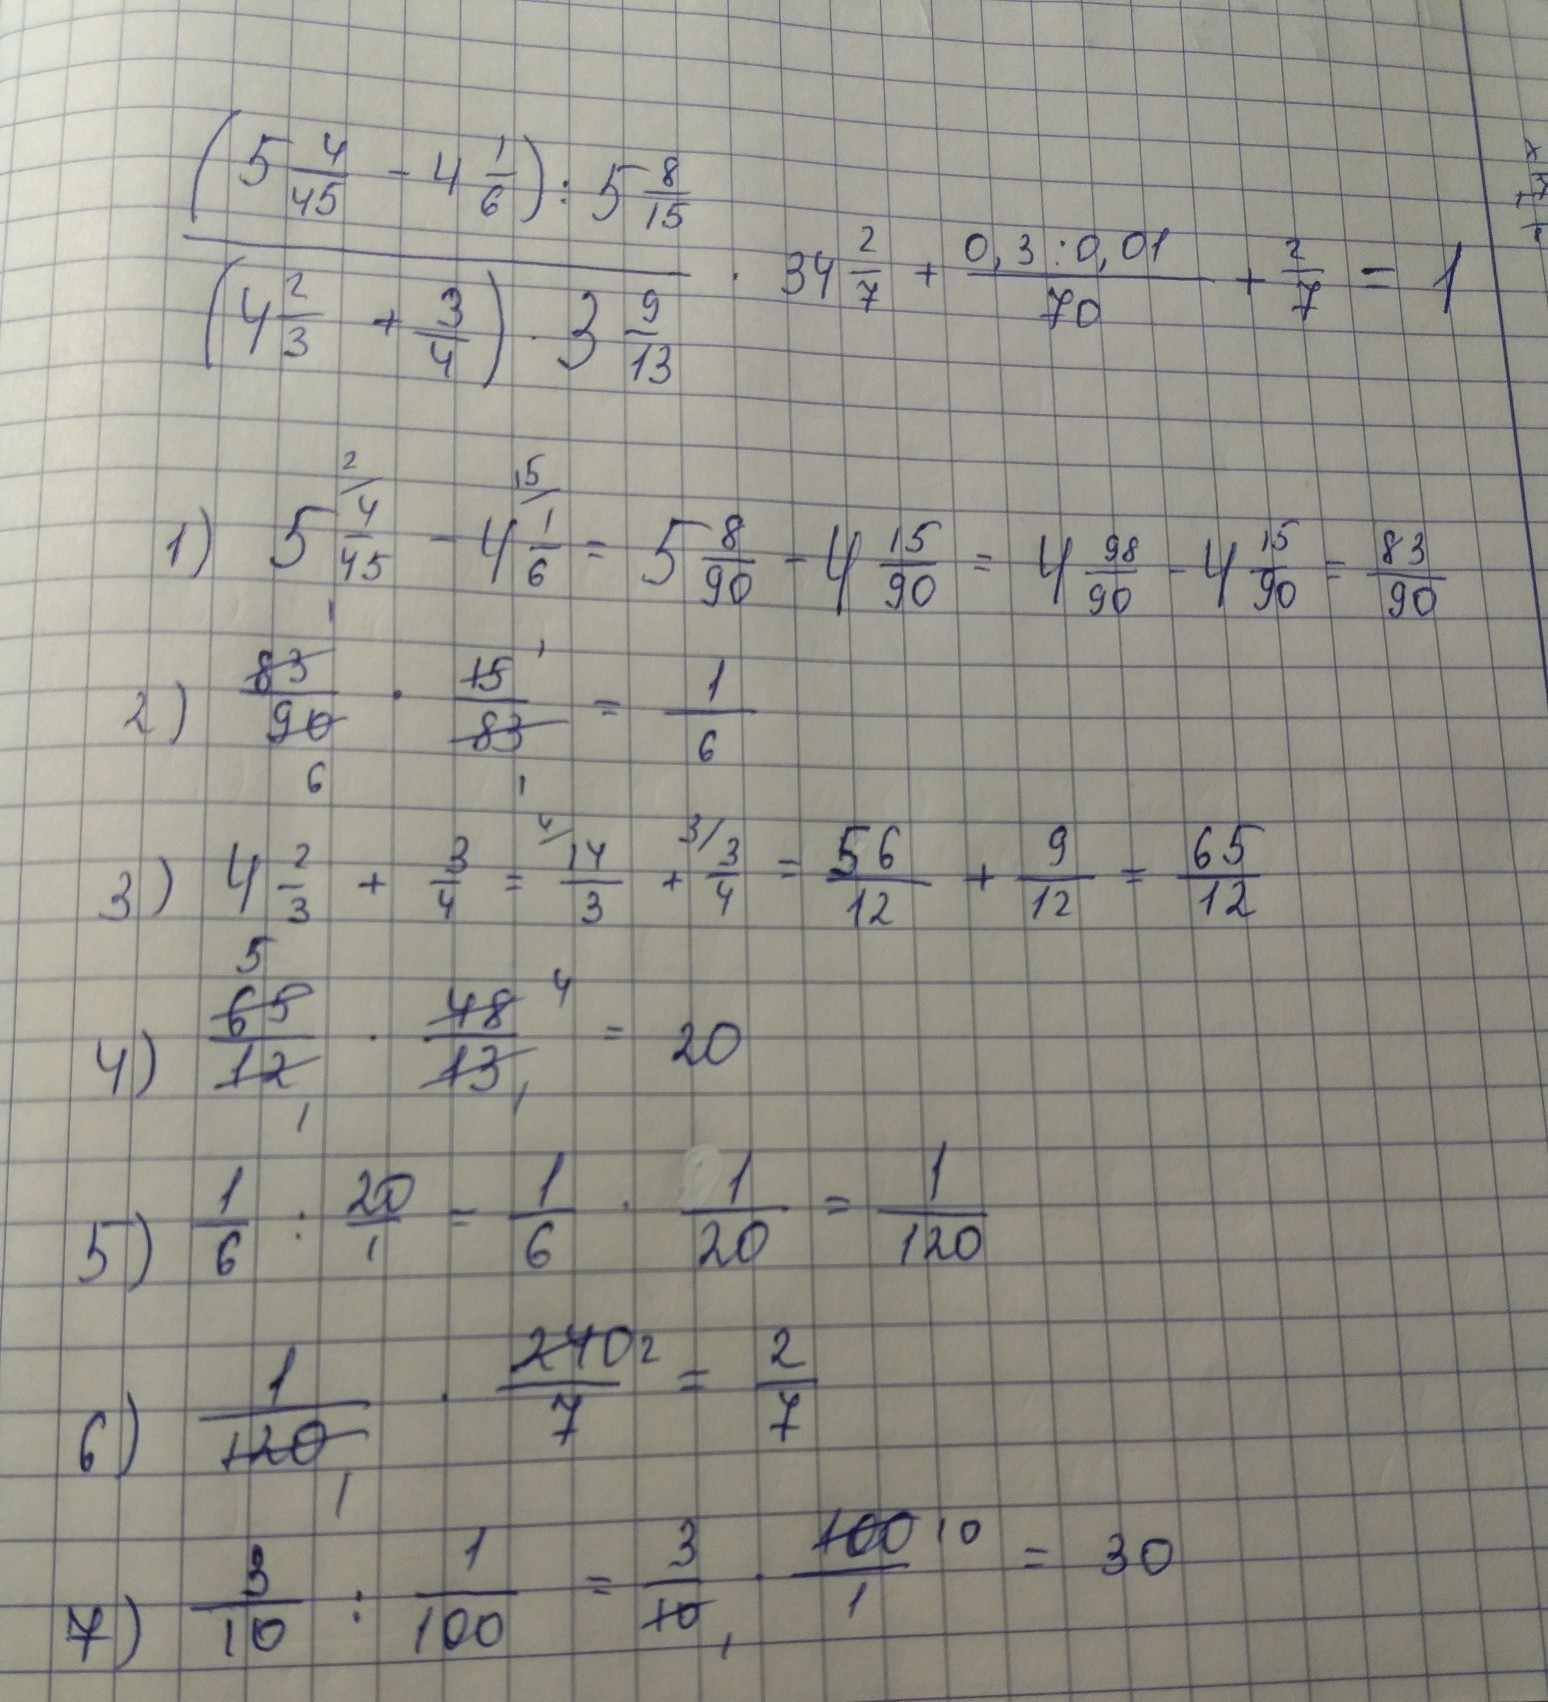 (5 4/45 - 4 1/6) : 5 8/15
(4 2/3 + 3/4) · 3 9/13
· 34 2/7 + 0,3:0,01/70 + 2/7 = 1
1) 5 2/ 4/45 - 4 15/ 1/6 = 5 8/90 - 4 15/90 = 4 98/90 - 4 15/90 = 83/90
2) 83/90 · 15/83 = 1/6
1 1
6 1
3) 4 2/3 + 3/4 = 4/ 14/3 + 3/ 3/4 = 56/12 + 9/12 = 65/12
5 4
4) 65/12 · 48/13 = 20
1 1
5) 1/6 : 20/1 = 1/6 · 1/20 = 1/120
6) 1/120 · 240/7 2 = 2/7
1
7) 3/10 : 1/100 = 3/10 · 100/1 10 = 30
1